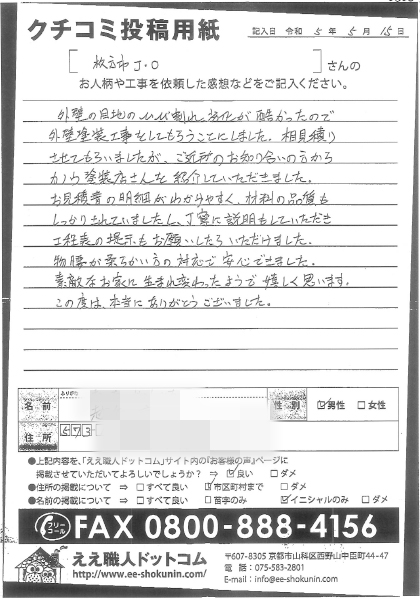 クチコミ投稿用紙
記入日 令和 5 年 5 月 15 日
[ 枚方市 J.O ] さんの
お人柄や工事を依頼した感想などをご記入ください。
外壁の目地のひび割れ、劣化が酷かったので
外壁塗装工事をしてもらうことにしました。相見積り
させてもらいましたが、ご近所のお知り合いの方から
塗装店さんを紹介していただきました。
お見積書の明細がわかりやすく、材料の品質も
しっかりされていましたし、丁寧に説明もしていただき
工程表の提示もお願いしたらいただけました。
物腰が柔らかい方の対応で安心できました。
素敵なお家に生まれ変わったようで嬉しく思います。
この度は、本当にありがとうございました。
ふりがな
名前
性別 ☑男性 □女性
住所 573
●上記内容を、「ええ職人ドットコム」サイト内の『お客様の声』ページに
掲載させていただいてよろしいでしょうか? ⇒ ☑良い □ダメ
●住所の掲載について ⇒ □すべて良い ☑市区町村まで □ダメ
●名前の掲載について ⇒ □すべて良い □苗字のみ ☑イニシャルのみ □ダメ
フリーコール FAX 0800-888-4156
ええ職人ドットコム
http://www.ee-shokunin.com/
〒607-8305 京都市山科区西野山中臣町44-47
電話:075-583-2801
E-mail:info@ee-shokunin.com